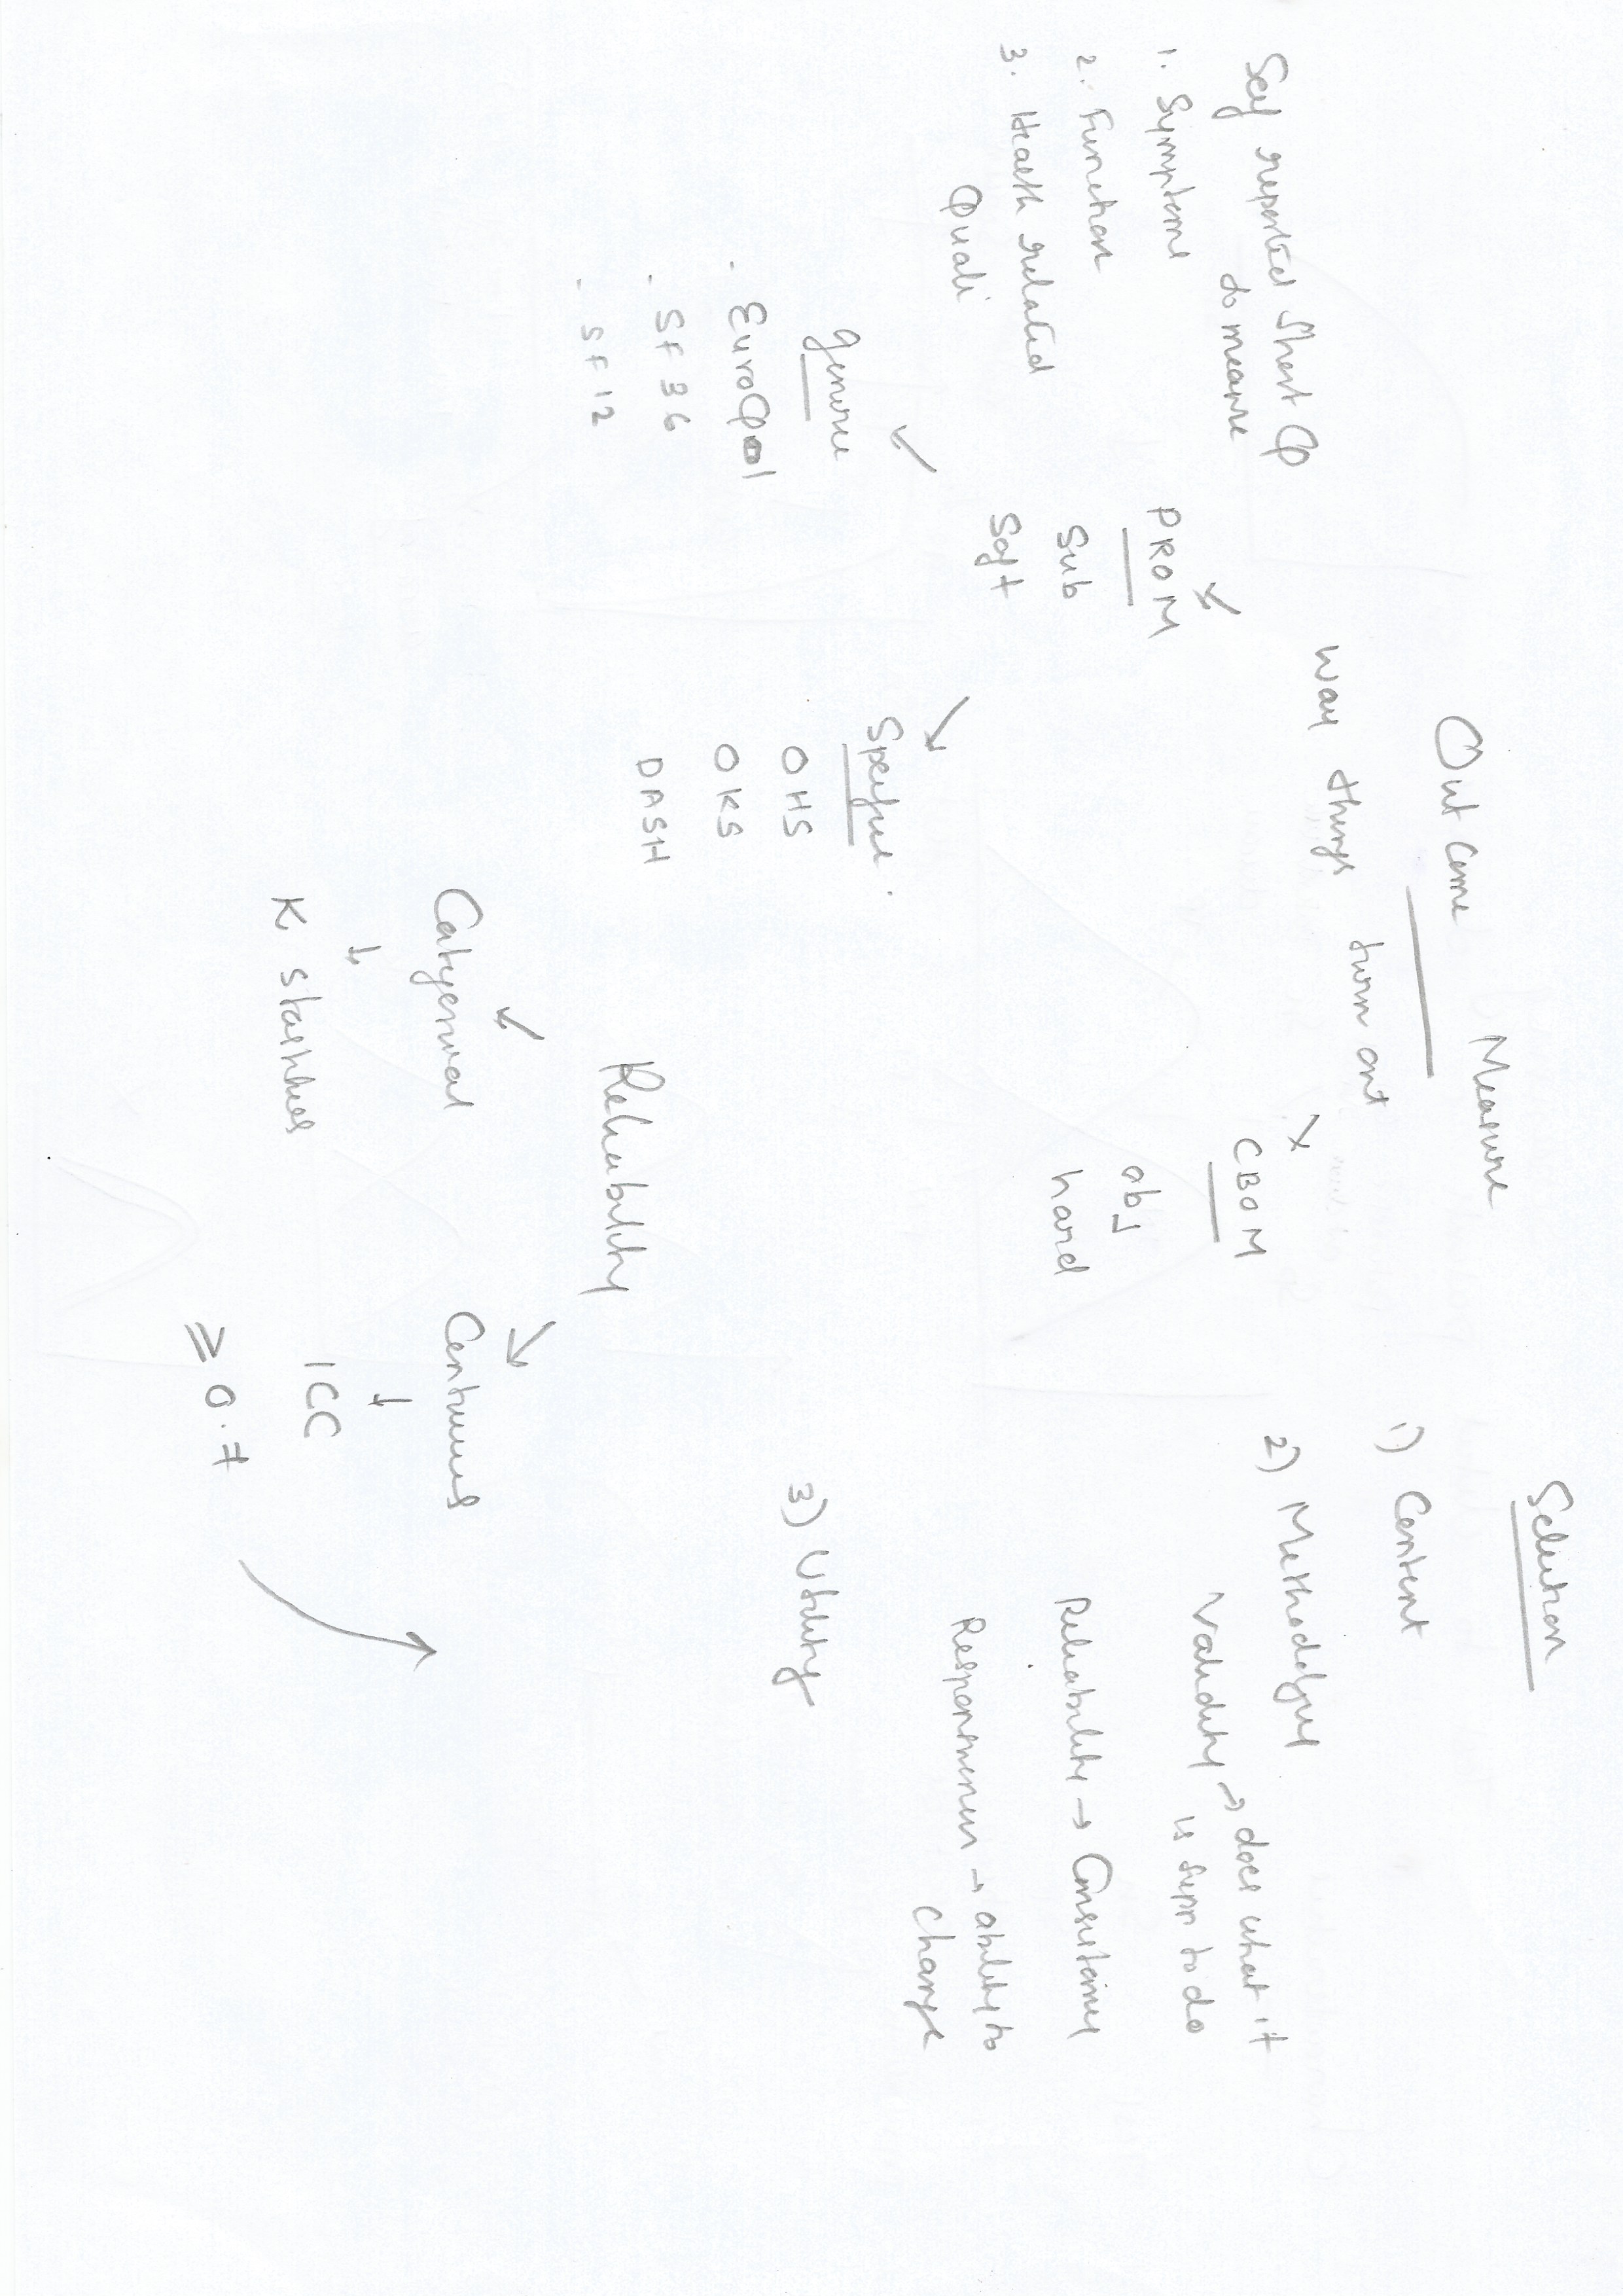 Out Come Measure
way things turn out
PROM
Sub
Soft
CBOM
obj
hard
Self reported short Q
to measure
1. Symptoms
2. Function
3. Health related
Quali
generic
. EuroQol
. SF 36
. SF 12
Specific.
OHS
OKS
DASH
Reliability
Categorical
↓
K statistics
Continuous
↓
ICC
≥ 0.7
Selection
1) Content
2) Methodology
Validity → does what it
is supp to do
Reliability → Consistency
Responsiveness → ability to
change
3) Utility